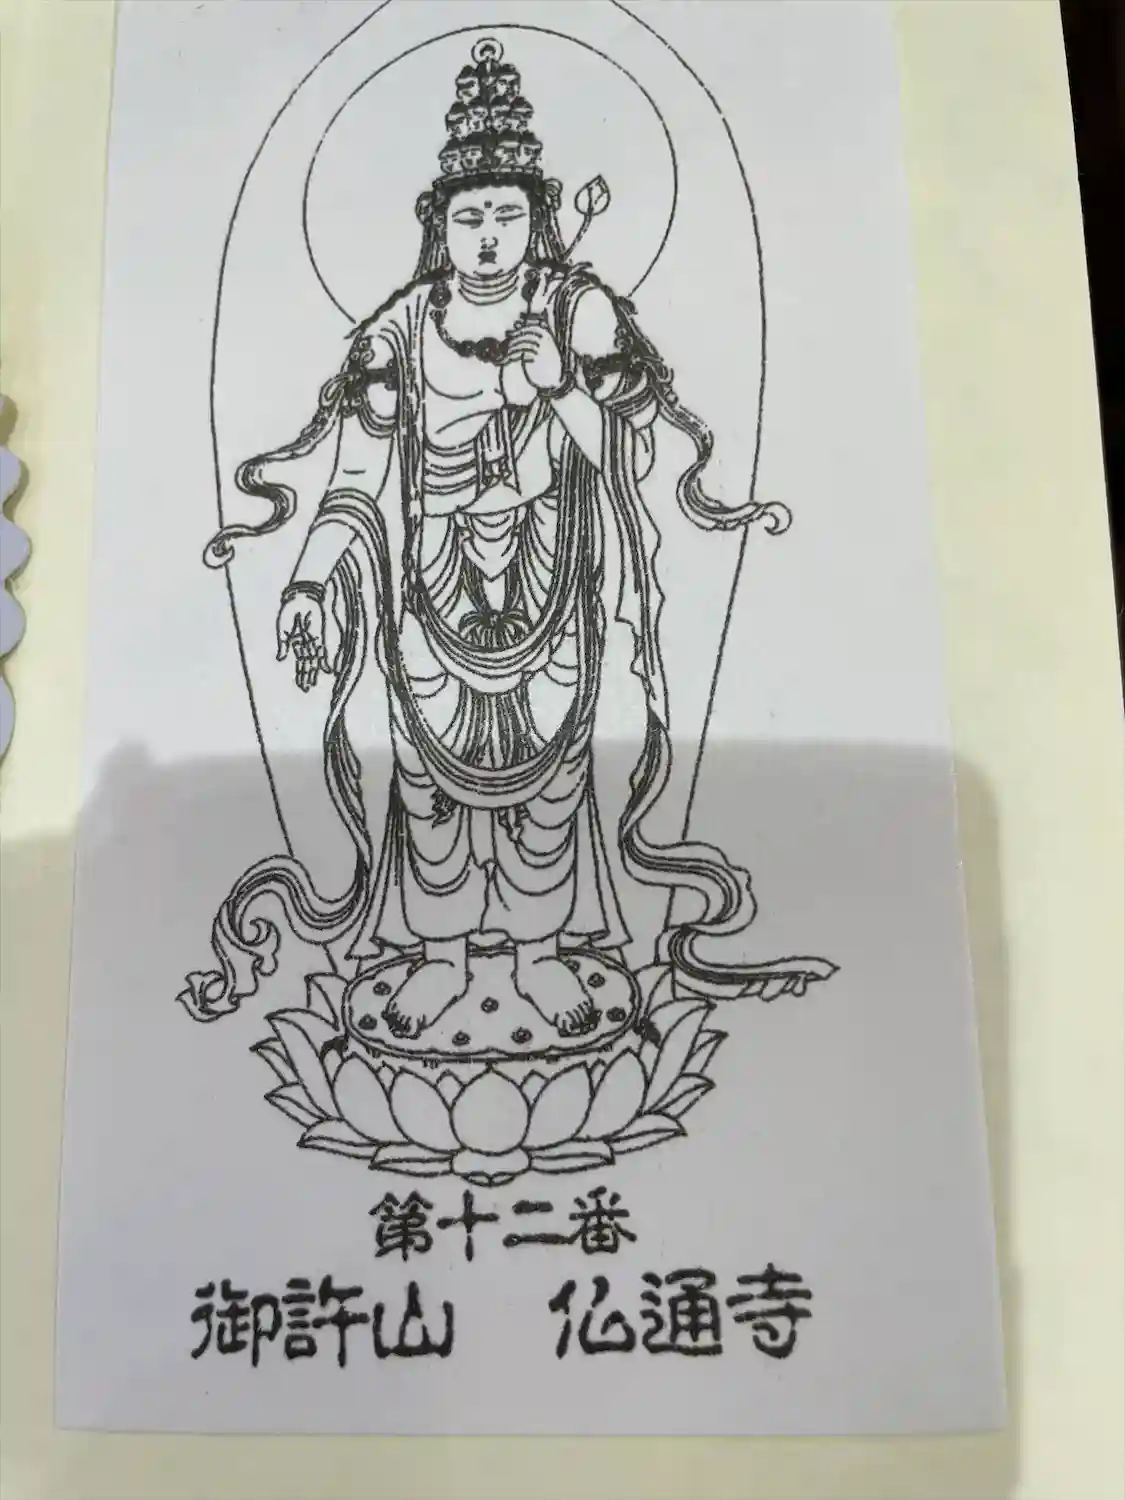 第十二番
御許山 仏通寺